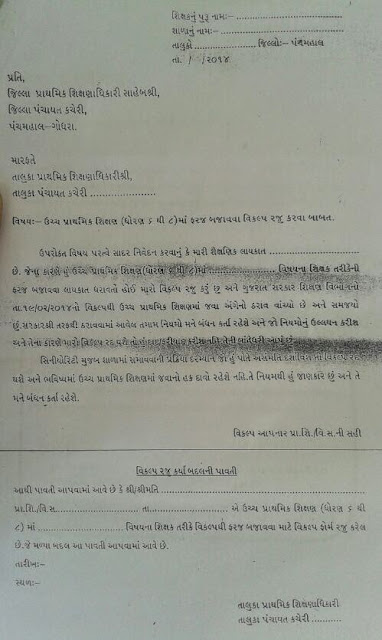 શિક્ષકનું પુરૂ નામઃ- ..............................
શાળાનું નામઃ- ..............................
તાલુકો .................... જિલ્લોઃ- પંચમહાલ
તા. / /૨૦૧૪
પ્રતિ,
જિલ્લા પ્રાથમિક શિક્ષણાધિકારી સાહેબશ્રી,
જિલ્લા પંચાયત કચેરી,
પંચમહાલ-ગોધરા.
મારફતે
તાલુકા પ્રાથમિક શિક્ષણાધિકારીશ્રી,
તાલુકા પંચાયત કચેરી ......................
વિષયઃ- ઉચ્ચ પ્રાથમિક શિક્ષણ (ધોરણ ૬ થી ૮)માં ફરજ બજાવવા વિકલ્પ રજુ કરવા બાબત.
ઉપરોક્ત વિષય પરત્વે સાદર નિવેદન કરવાનું કે મારી શૈક્ષણિક લાયકાત ......................
છે. જેના કારણે હું ઉચ્ચ પ્રાથમિક શિક્ષણ(ધોરણ ૬ થી ૮)માં...................... વિષયના શિક્ષક તરીકેની
ફરજ બજાવવા લાયકાત ધરાવતો હોઈ મારો વિકલ્પ રજુ કરું છું અને ગુજરાત સરકાર શિક્ષણ વિભાગનો
તા.૧૯/૦૨/૨૦૧૪નો વિકલ્પથી ઉચ્ચ પ્રાથમિક શિક્ષણમાં જવા અંગેનો ઠરાવ વાંચ્યો છે અને સમજ્યો
છું.સરકારશ્રી તરફથી ઠરાવવામાં આવેલ તમામ નિયમો મને બંધન કર્તા રહેશે અને જો નિયમોનું ઉલ્લંઘન કરીશ
અને તેના કારણે મારો વિકલ્પ રદ થશે તો હું દાવો નહીં
સિનીયોરિટી મુજબ શાળામાં સમાવવાની પ્રક્રિયા દરમ્યાન જો હું પોતે અસંમતિ દર્શાવીશ તો વિકલ્પ રદ
થશે અને ભવિષ્યમાં ઉચ્ચ પ્રાથમિક શિક્ષણમાં જવાનો હક દાવો રહેશે નહિ.તે નિયમથી હું જાણકાર છું અને તે
મને બંધન કર્તા રહેશે.
વિકલ્પ આપનાર પ્રા.શિ/વિ.સ.ની સહી
વિકલ્પ રજુ કર્યા બદલની પાવતી
આથી પાવતી આપવામાં આવે છે કે શ્રી/શ્રીમતિ ..............................
પ્રા.શિ/વિ.સ.................... તા.................... એ ઉચ્ચ પ્રાથમિક શિક્ષણ (ધોરણ ૬ થી
૮) માં ...................... વિષયના શિક્ષક તરીકે વિકલ્પથી ફરજ બજાવવા માટે વિકલ્પ ફોર્મ રજુ કરેલ
છે.જે મળ્યા બદલ આ પાવતી આપવામાં આવે છે.
તારીખઃ-
સ્થળઃ-
તાલુકા પ્રાથમિક શિક્ષણાધિકારી
તાલુકા પંચાયત કચેરી ............